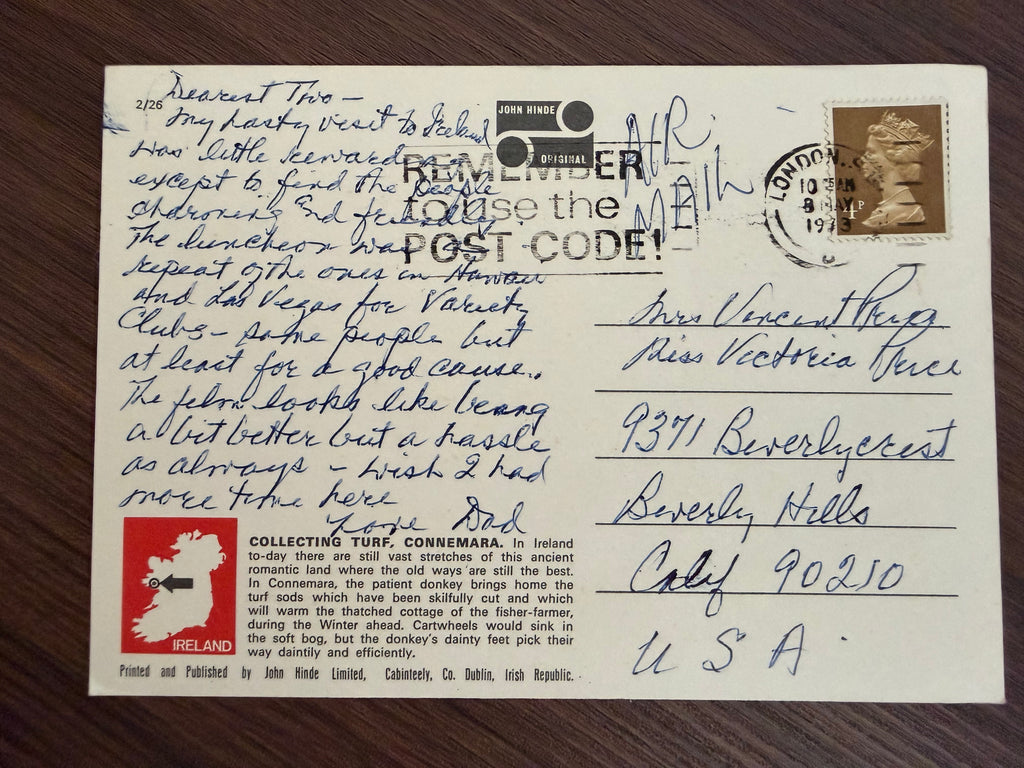 2/26
Dearest Two –
My hasty visit to Ireland
was little reward
except to find the people
charming and friendly.
The luncheon was a
repeat of the ones in Hawaii
and Las Vegas for Variety
Clubs – same people but
at least for a good cause..
The film looks like being
a bit better but a hassle
as always – wish I had
more time here
Love Dad
JOHN HINDE
ORIGINAL
REMEMBER
to use the
POST CODE!
AIR
MAIL
LONDON
10 AM
8 MAY
1973
4P
Mrs Vincent Price
Miss Victoria Price
9371 Beverlycrest
Beverly Hills
Calif 90210
U S A
IRELAND
COLLECTING TURF, CONNEMARA. In Ireland
to-day there are still vast stretches of this ancient
romantic land where the old ways are still the best.
In Connemara, the patient donkey brings home the
turf sods which have been skilfully cut and which
will warm the thatched cottage of the fisher-farmer,
during the Winter ahead. Cartwheels would sink in
the soft bog, but the donkey's dainty feet pick their
way daintily and efficiently.
Printed and Published by John Hinde Limited, Cabinteely, Co. Dublin, Irish Republic.